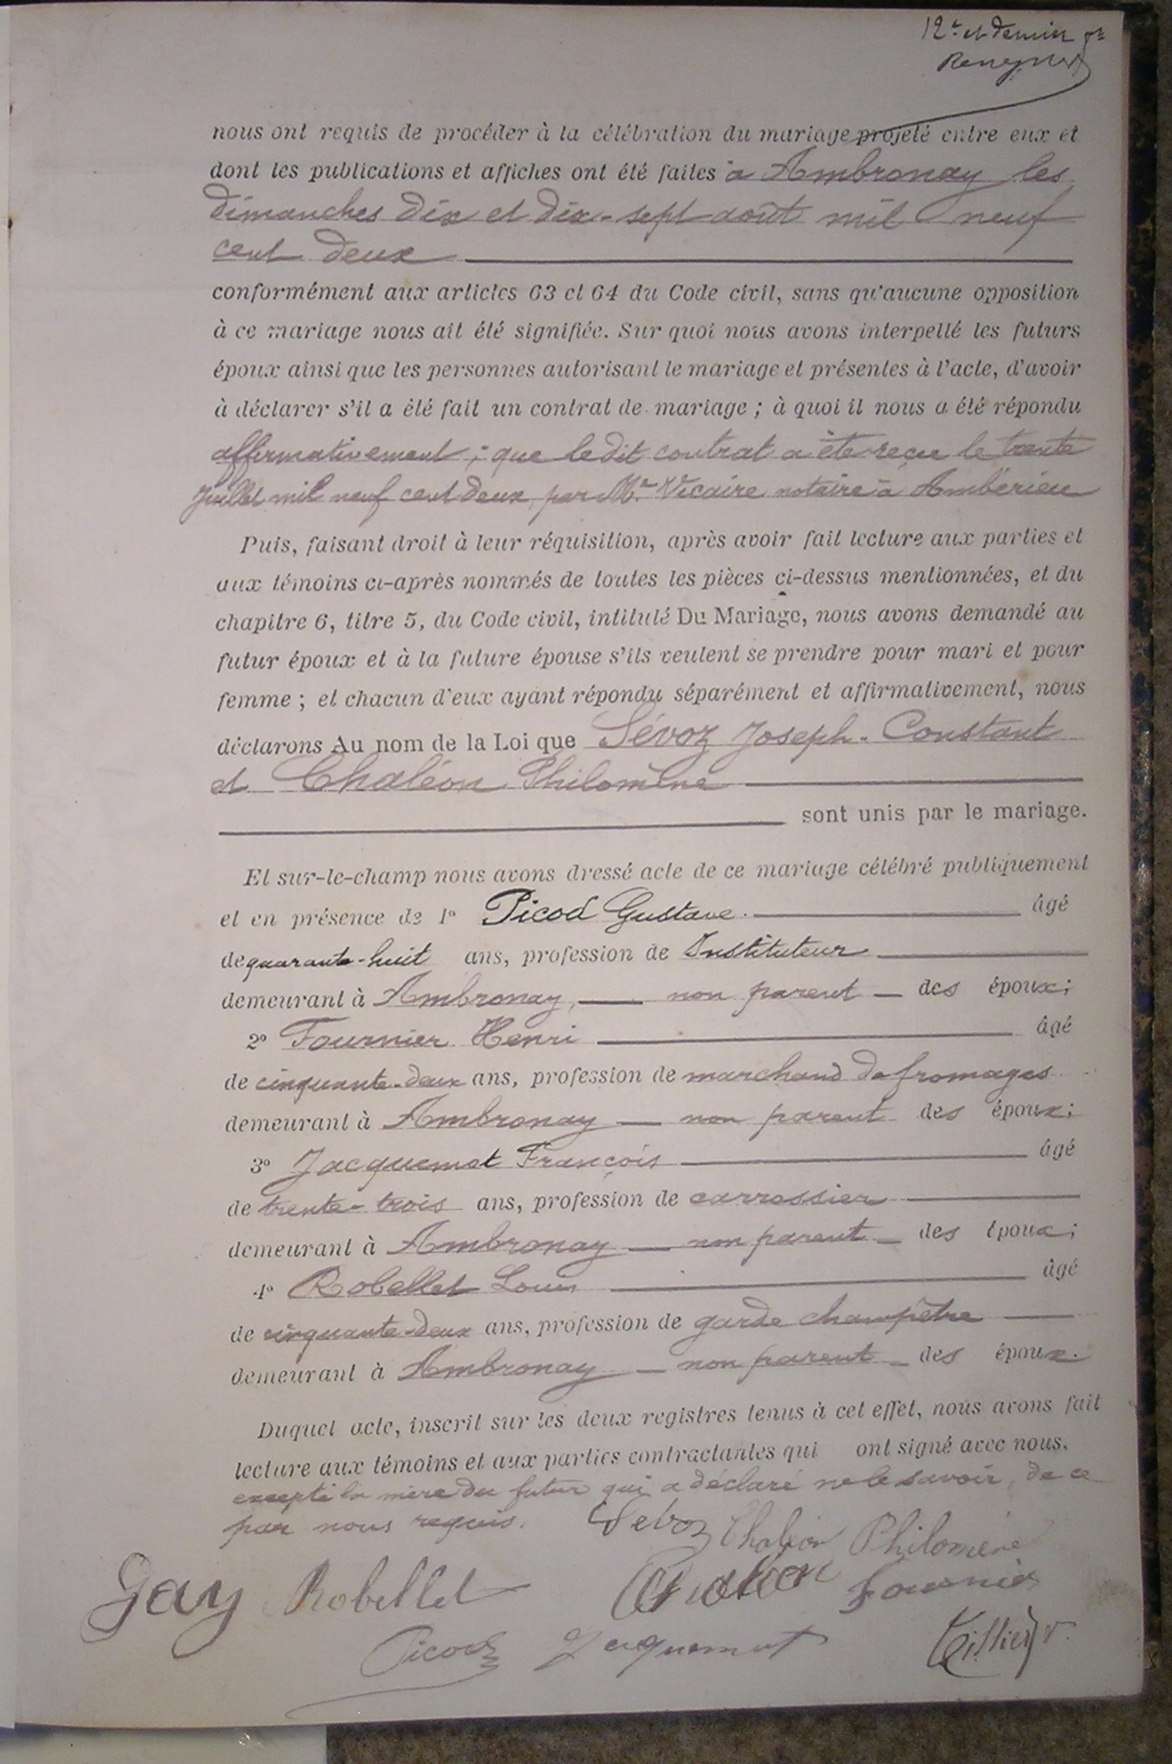 12e et dernier
nous ont requis de procéder à la célébration du mariage projeté entre eux et
dont les publications et affiches ont été faites à Ambronay les
dimanches dix et dix-sept août mil neuf
cent deux
conformément aux articles 63 et 64 du Code civil, sans qu'aucune opposition
à ce mariage nous ait été signifiée. Sur quoi nous avons interpellé les futurs
époux ainsi que les personnes autorisant le mariage et présentes à l'acte, d'avoir
à déclarer s'il a été fait un contrat de mariage ; à quoi il nous a été répondu
affirmativement ; que le dit contrat a été reçu le trente
juillet mil neuf cent deux par Me Vicaire notaire à Ambérieu
Puis, faisant droit à leur réquisition, après avoir fait lecture aux parties et
aux témoins ci-après nommés de toutes les pièces ci-dessus mentionnées, et du
chapitre 6, titre 5, du Code civil, intitulé Du Mariage, nous avons demandé au
futur époux et à la future épouse s'ils veulent se prendre pour mari et pour
femme ; et chacun d'eux ayant répondu séparément et affirmativement, nous
déclarons Au nom de la Loi que Sévoz Joseph-Constant
et Chaléon Philomène
sont unis par le mariage.
Et sur-le-champ nous avons dressé acte de ce mariage célébré publiquement
et en présence de 1º Picod Gustave. âgé
de quarante-huit ans, profession de Instituteur
demeurant à Ambronay, non parent des époux;
2º Fournier Henri âgé
de cinquante-deux ans, profession de marchand de fromages
demeurant à Ambronay non parent des époux;
3º Jacquemet François âgé
de trente-trois ans, profession de carrossier
demeurant à Ambronay non parent des époux;
4º Robellet Louis âgé
de cinquante-deux ans, profession de garde champêtre
demeurant à Ambronay non parent des époux.
Duquel acte, inscrit sur les deux registres tenus à cet effet, nous avons fait
lecture aux témoins et aux parties contractantes qui ont signé avec nous,
excepté la mère du futur qui a déclaré ne le savoir, de ce
par nous requis. Sevoz Chaléon Philomène
Gay Robellet Chaléon Fournier
Picod Jacquemet Tillier